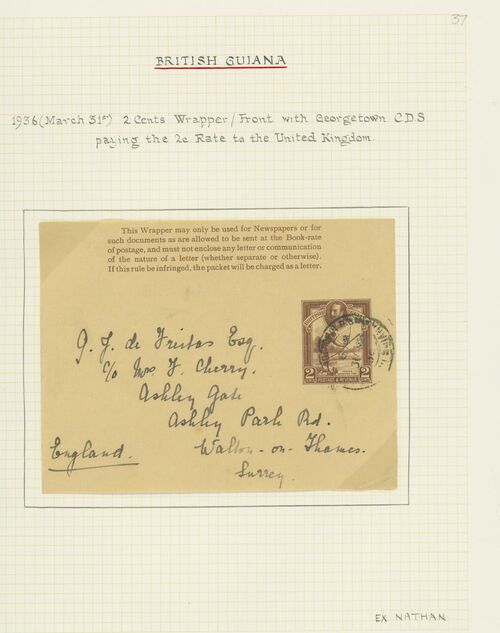 37
BRITISH GUIANA
1936 (March 31st) 2 Cents Wrapper/Front with Georgetown C.D.S
paying the 2c Rate to the United Kingdom.
This Wrapper may only be used for Newspapers or for
such documents as are allowed to be sent at the Book-rate
of postage, and must not enclose any letter or communication
of the nature of a letter (whether separate or otherwise).
If this rule be infringed, the packet will be charged as a letter.
2 2
POSTAGE & REVENUE
J. de Freitas Esq.
c/o Mrs F. Cherry.
Ashley Gate
Ashley Park Rd.
England. Walton-on-Thames.
Surrey.
EX NATHAN